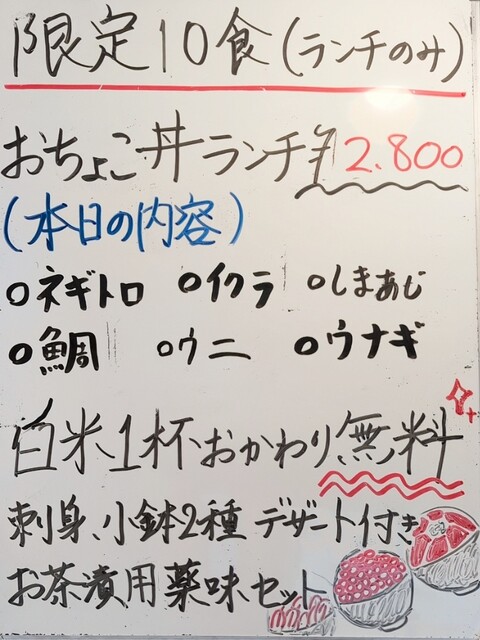 限定10食(ランチのみ)
おちょこ丼ランチ¥2.800
(本日の内容)
○ネギトロ ○イクラ ○しまあじ
○鯛 ○ウニ ○ウナギ
白米1杯おかわり無料
刺身、小鉢2種 デザート付き
お茶漬用薬味セット